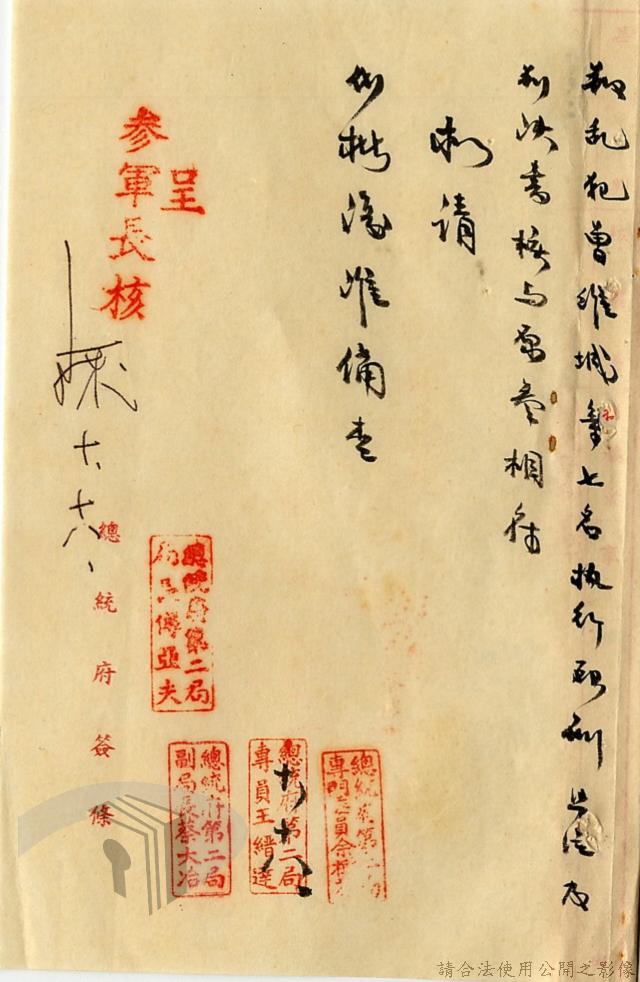 叛乱犯曾維城等七名執行死刑照片及
判決書核与原卷相符
擬請
批復准備查
呈
參軍長核
十、十六、
總統府簽條
總統府第二局
局長傅亞夫
總統府第二局
副局長蔡大冶
總統府第二局
專員王縉達
十、十六
總統府第二局
專門委員佘
請合法使用公開之影像